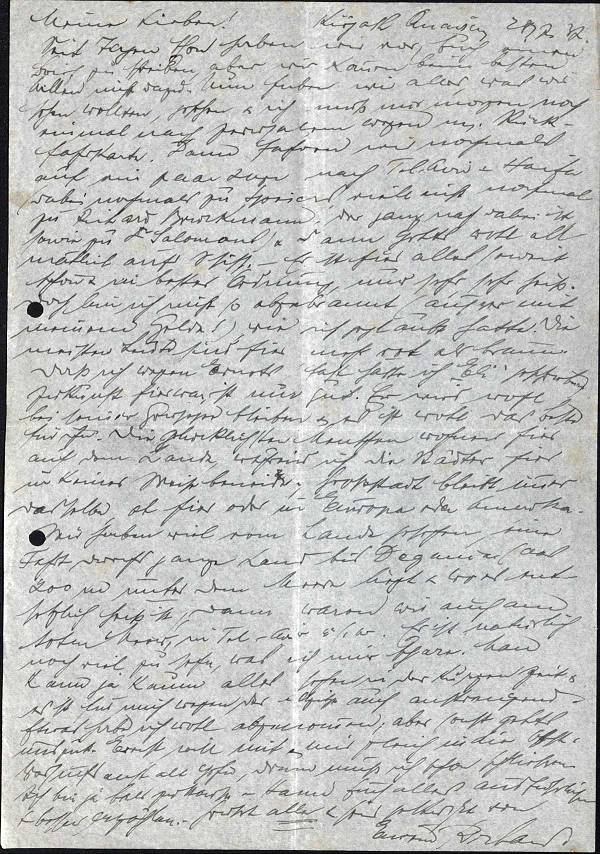 Meine Lieben! Kirjath Anavim
Seit Tagen schon haben wir vor, Euch einen
Brief zu schreiben aber wir kamen beim besten
Willen nicht dazu. Nun haben wir alles was wir
sehen wollten, gesehen & ich muß nur morgen noch
einmal nach Jerusalem wegen m. Rück-
fahrkarte. Dann fahren wir nochmals
auf ein paar Tage nach Tel-Aviv & Haifa
dabei nochmals zu vielleicht nochmal
zu Richard Brockmann, der ganz nah dabei ist
sowie zu Salomons, & dann gehts wohl all
mählich aufs Schiff. Es ist hier alles soweit
schön & in bester Ordnung, nur sehr sehr heiß.
Doch bin ich nicht so abgebrannt (außer mit
meinem Gelde!) wie ich geglaubt hatte. Die
meisten Leute sind hier mehr rot als braun.
Daß ich wegen Ernst
hier war, ist nur gut. Er wird wohl
bei seiner bleiben & es ist wohl das beste
für ihn. Die glücklichsten Menschen wohnen hier
auf dem Lande, während ich die Städter hier
in keiner Weise beneide. Großstadt bleibt immer
dasselbe ob hier oder in Europa oder Amerika.
Wir haben viel vom Lande gesehen, eine
Fahrt durchs ganze Land bis Degania (das
200 m unter dem Meere liegt & wo es ent-
setzlich heiß ist), dann waren wir auch am
toten Meer, in Tel-Aviv u.s.w. Es ist natürlich
noch viel zu sehen, was ich mir spare. Man
kann ja kaum alles sehen in der kurzen Zeit &
es ist für mich wegen der Hitze auch anstrengend.
Etwas habe ich wohl abgenommen, aber sonst gehts
mir gut. Ernst will mit mir gleich in die
, darum muß ich schon schließen.
Ich bin ja bald zurück & kann Euch alles ausführlicher
& besser erzählen. alle & seid herzlichst von